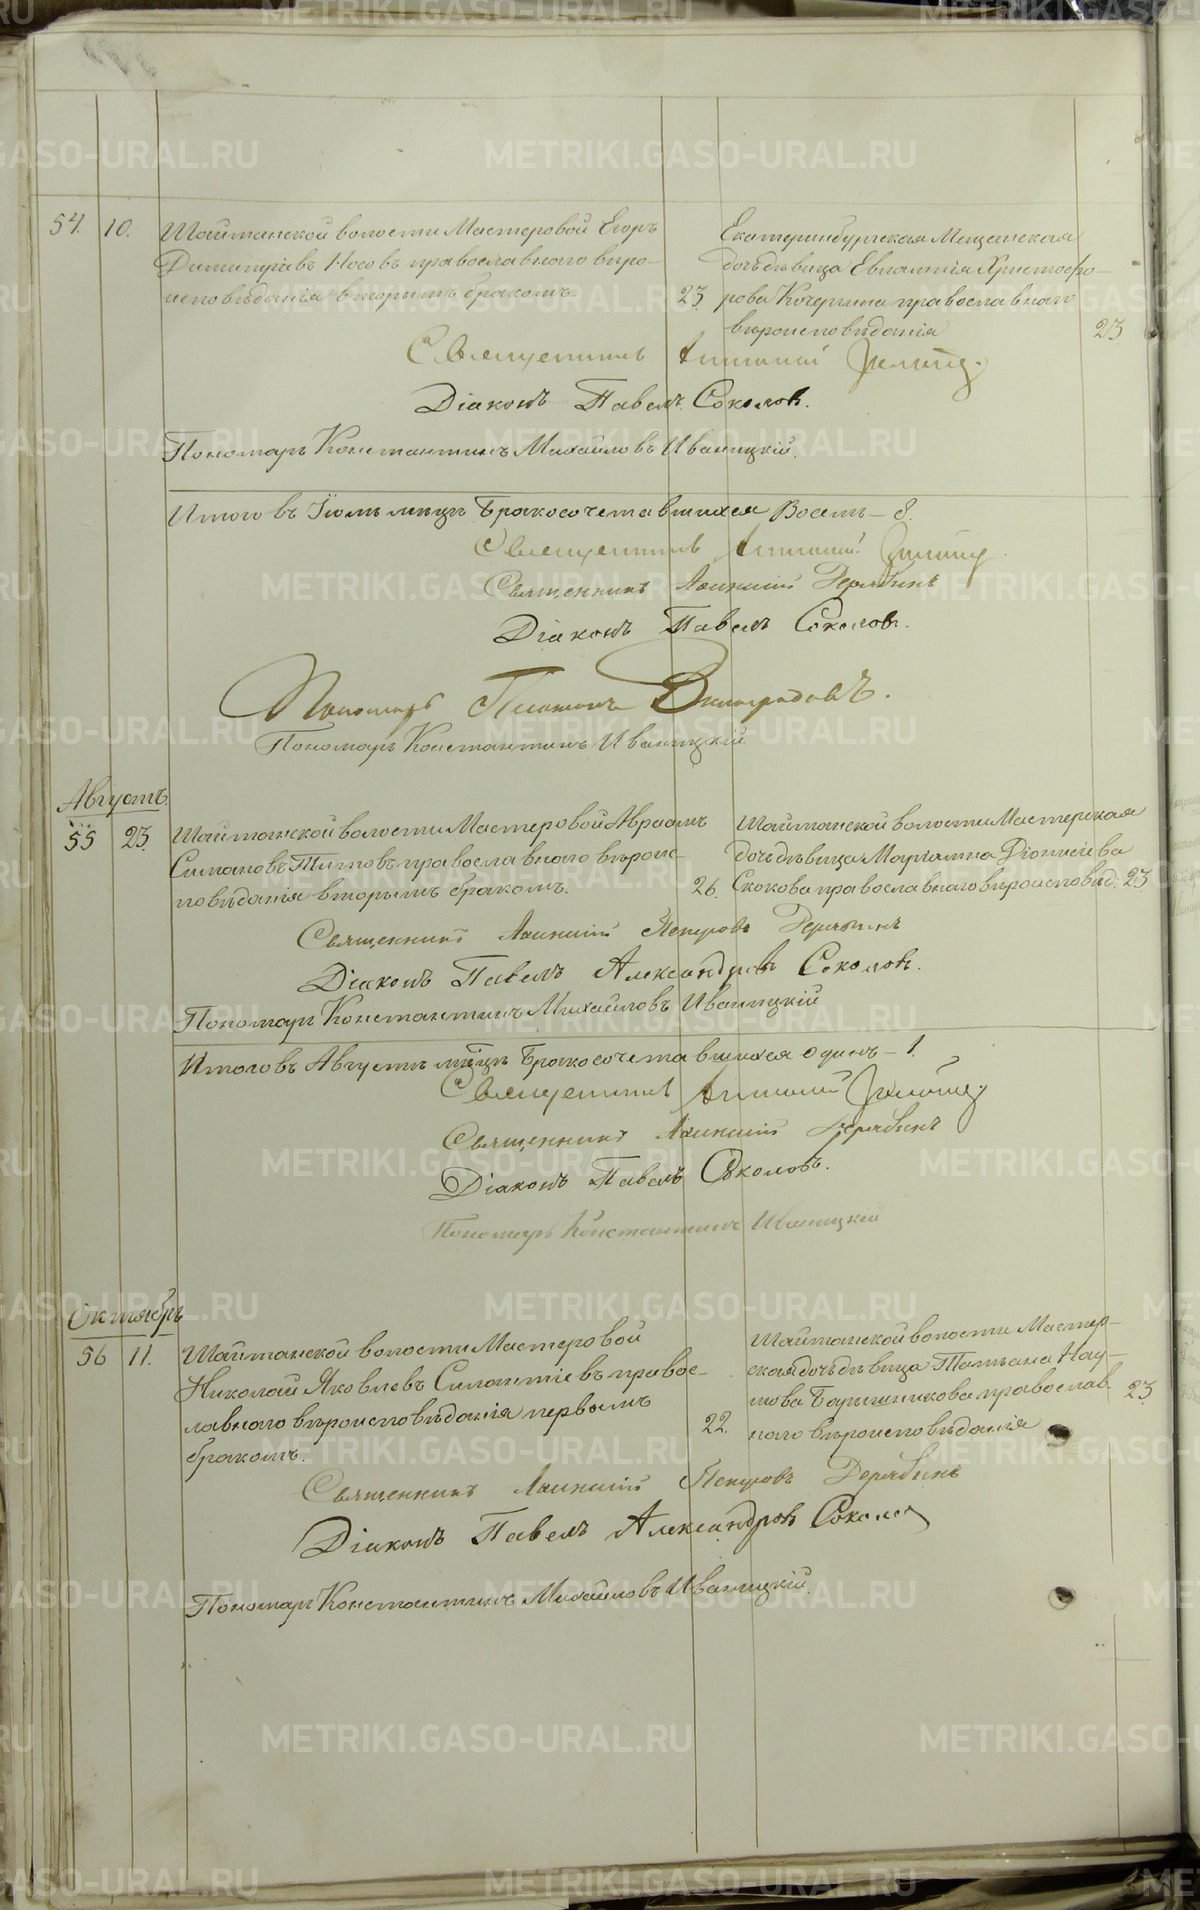 54. 10. Шайтанской волости Мастеровой Егоръ
Димитріевъ Носовъ православнаго вѣро-
исповѣданія вторымъ бракомъ. 23.
Екатеринбургская Мещанская
дочь дѣвица Евлампія Христофо-
рова Кочергина православнаго
вѣроисповѣданія 23
Священникъ
Діаконъ Павелъ Соколовъ.
Пономарь Константинъ Михайловъ Иваницкій.
Итого въ Іюлѣ мѣсцѣ Бракосочетавшихся Восемь – 8.
Священникъ
Священникъ Дерябинъ
Діаконъ Павелъ Соколовъ.
Пономарь Платонъ Виноградовъ.
Пономарь Константинъ Иваницкій
Августъ.
55 23. Шайтанской волости Мастеровой Авраамъ
Симановъ Титовъ православнаго вѣроис-
повѣданія вторымъ бракомъ. 26.
Шайтанской волости Мастерская
дочь дѣвица Маріамна Діонисіева
Скокова православнаго вѣроисповѣд. 23
Священникъ Петровъ Дерябинъ
Діаконъ Павелъ Александровъ Соколовъ.
Пономарь Константинъ Михайловъ Иваницкій
Итого въ Августѣ мѣсцѣ Бракосочетавшихся одинъ – 1.
Священникъ
Священникъ Дерябинъ
Діаконъ Павелъ Соколовъ.
Пономарь Константинъ Иваницкій
Октябрь
56 11. Шайтанской волости Мастеровой
Николай Яковлевъ Силантіевъ правос-
лавнаго вѣроисповѣданія первымъ 22.
бракомъ.
Шайтанской волости Мастер-
ская дочь дѣвица Татьяна Нау-
мова Барышникова православ- 23
наго вѣроисповѣданія
Священникъ Петровъ Дерябинъ
Діаконъ Павелъ Александровъ Соколовъ
Пономарь Константинъ Михайловъ Иваницкій.
METRIKI.GASO-URAL.RU